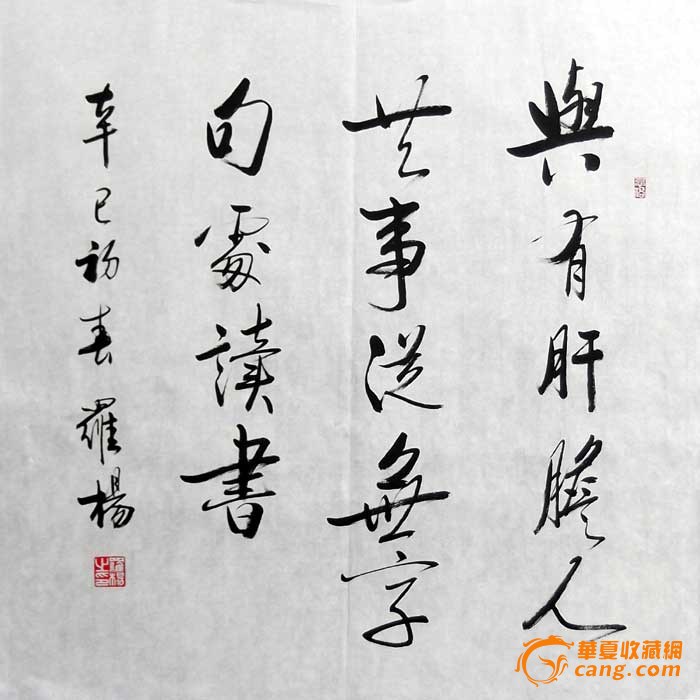 與有肝膽人
共事從無字
句處讀書
辛巳初春 羅楊
華夏收藏網
cang.com